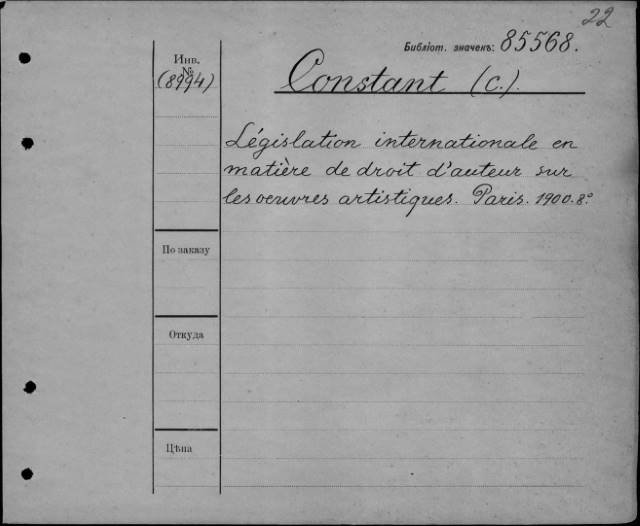 22
Библіот. значекъ: 85568.
Инв.
№
(8994)
Constant (C.).
Législation internationale en
matière de droit d'auteur sur
les oeuvres artistiques. Paris. 1900. 8.°
По заказу
Откуда
Цѣна